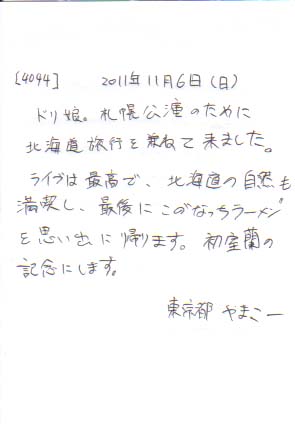 [4094] 2011年11月6日(日)
ドリ娘。札幌公演のために
北海道旅行を兼ねて来ました。
ライブは最高で、北海道の自然も
満喫し、最後にこのなっちラーメン
を思い出に帰ります。初室蘭の
記念にします。
東京都 やまこー